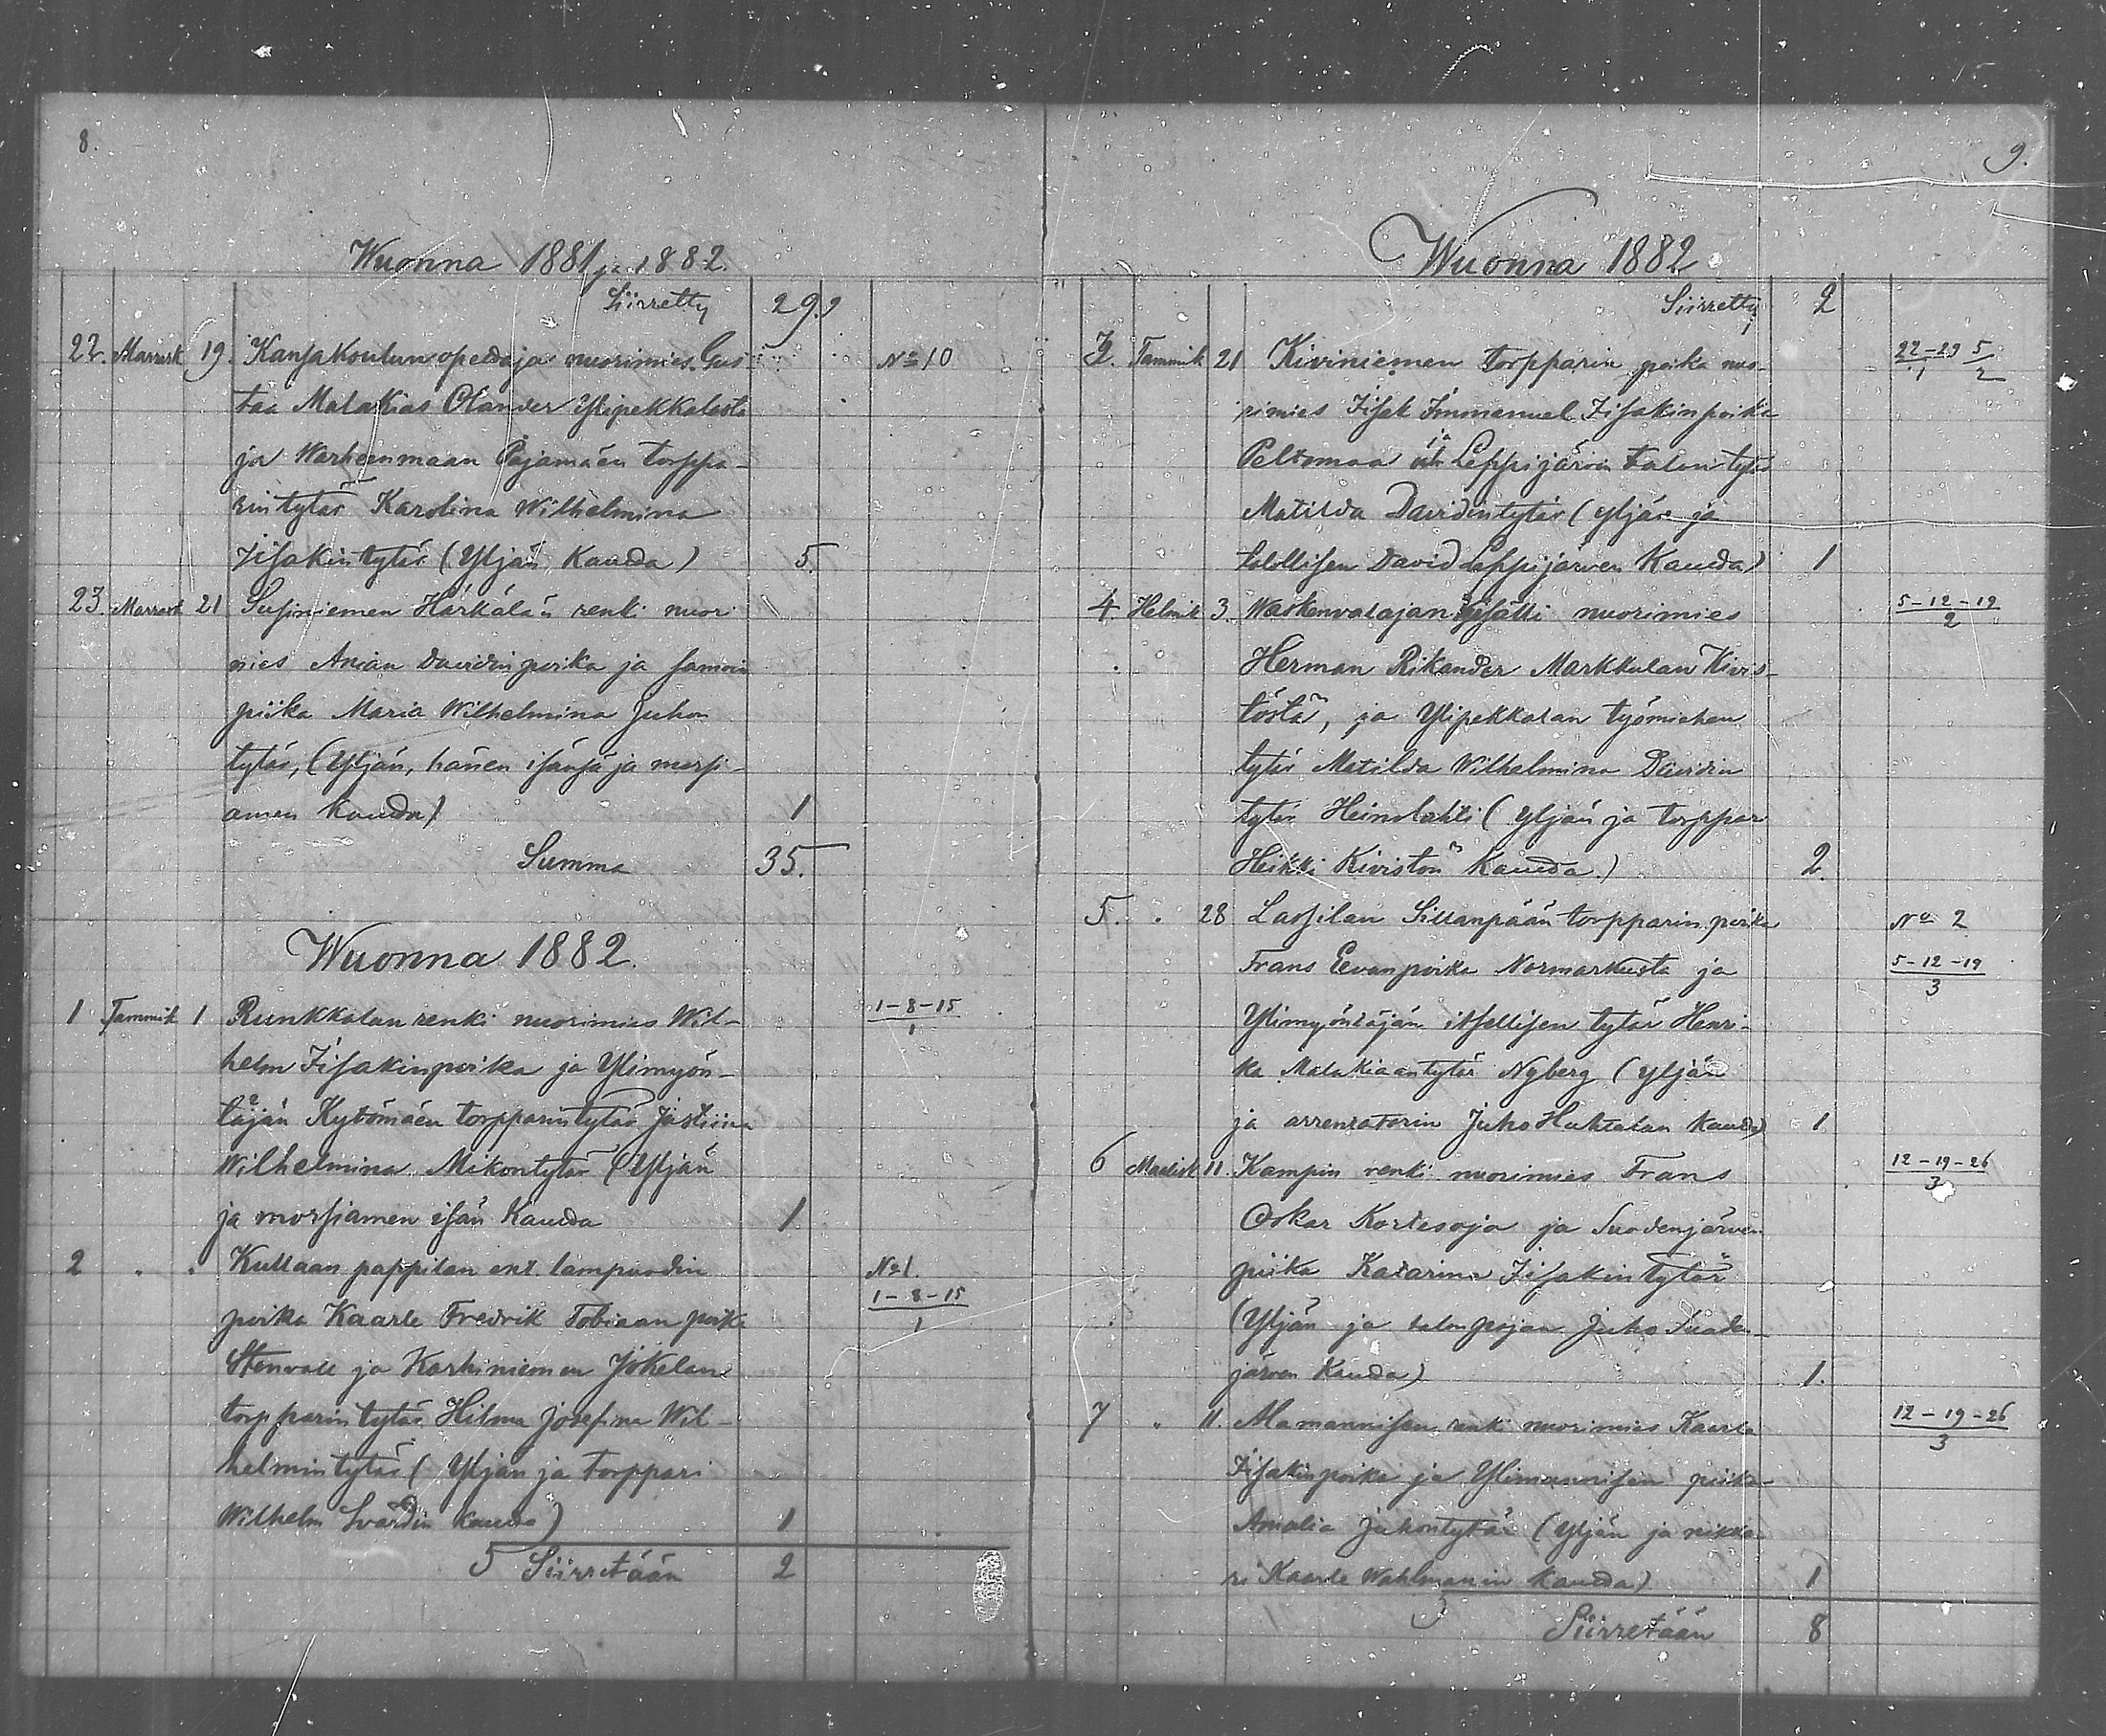 8.
Wuonna 1881 ja 1882.
Siirretty 29.
22. Marrask 19. Kansakoulun opettaja nuorimies Gus- No 10
taa Malakias Olander Ylipekkalasta
ja Warheenmaan Pajamäen torppa-
rin tytär Karolina Wilhelmina
Iisakintytär (Yljän kautta) 5.
23 Marrask 21 Susiniemen Härkälän renki nuori
mies Anian Davidinpoika ja samoin
piika Maria Wilhelmina Juhon
tytär, (Yljän, hänen isänsä ja morsi-
amen kautta) 1
Summa 35.
Wuonna 1882.
1 Tammik 1 Runkkalan renki nuorimies Wil- 1-8-15
helm Iisakinpoika ja Ylimyön- 1
täjän Kytömäen torpparintytär Justiina
Wilhelmina Mikontytär (Yljän
ja morsiamen isän kautta 1
2 " " Kullaan pappilan ent. lampuodin No 1.
poika Kaarle Fredrik Tobiaan poika 1-8-15
Stenvall ja Karhiniemen Jokelan 1
torpparin tytär Hilma Josefina Wil-
helmintytär (Yljän ja torppari
Wilhelm Svärdin kautta) 1
5 Siirretään 2
9.
Wuonna 1882
Siirretty 2
3. Tammik 21 Kiviniemen torpparin poika nuo- 22-29 5
rimies Iisak Immanuel Iisakinpoika 1 2
Peltomaa ja Leppijärvin talon tytär
Matilda Davidintytär (yljän ja
talollisen David Leppijärven kautta) 1
4. Helmik 3. Waskenvalajan kisälli nuorimies 5-12-19
Herman Rikander Markkulan Kivis- 2
töstä, ja Ylipekkalan työmiehen
tytär Matilda Wilhelmina Davidin
tytär Heinolahti (yljän ja torppar
Heikki Kiviston kautta.) 2.
5. " 28 Lassilan Sillanpään torpparin poika No 2
Frans Eevanpoika Normarkusta ja 5-12-19
Ylimyöntäjän itsellisen tytär Henri- 3
ka Malakiaantytär Nyberg (yljän
ja arrentatorin Juho Huhtalan kautta) 1
6 Maalisk 11. Kampin renki nuorimies Frans 12-19-26
Oskar Kortesoja ja Suodenjärven 3
piika Katarina Iisakintytär
(Yljän ja talonpojan Juho Suoden-
järven kautta) 1.
7 " 11. Alamannisen renki nuorimies Kaarle 12-19-26
Iisakinpoika ja Ylimannisen piika 3
Amalia Juhontytär (Yljän ja nikka-
ri Kaarle Wahlmanin kautta) 1
Siirretään 8